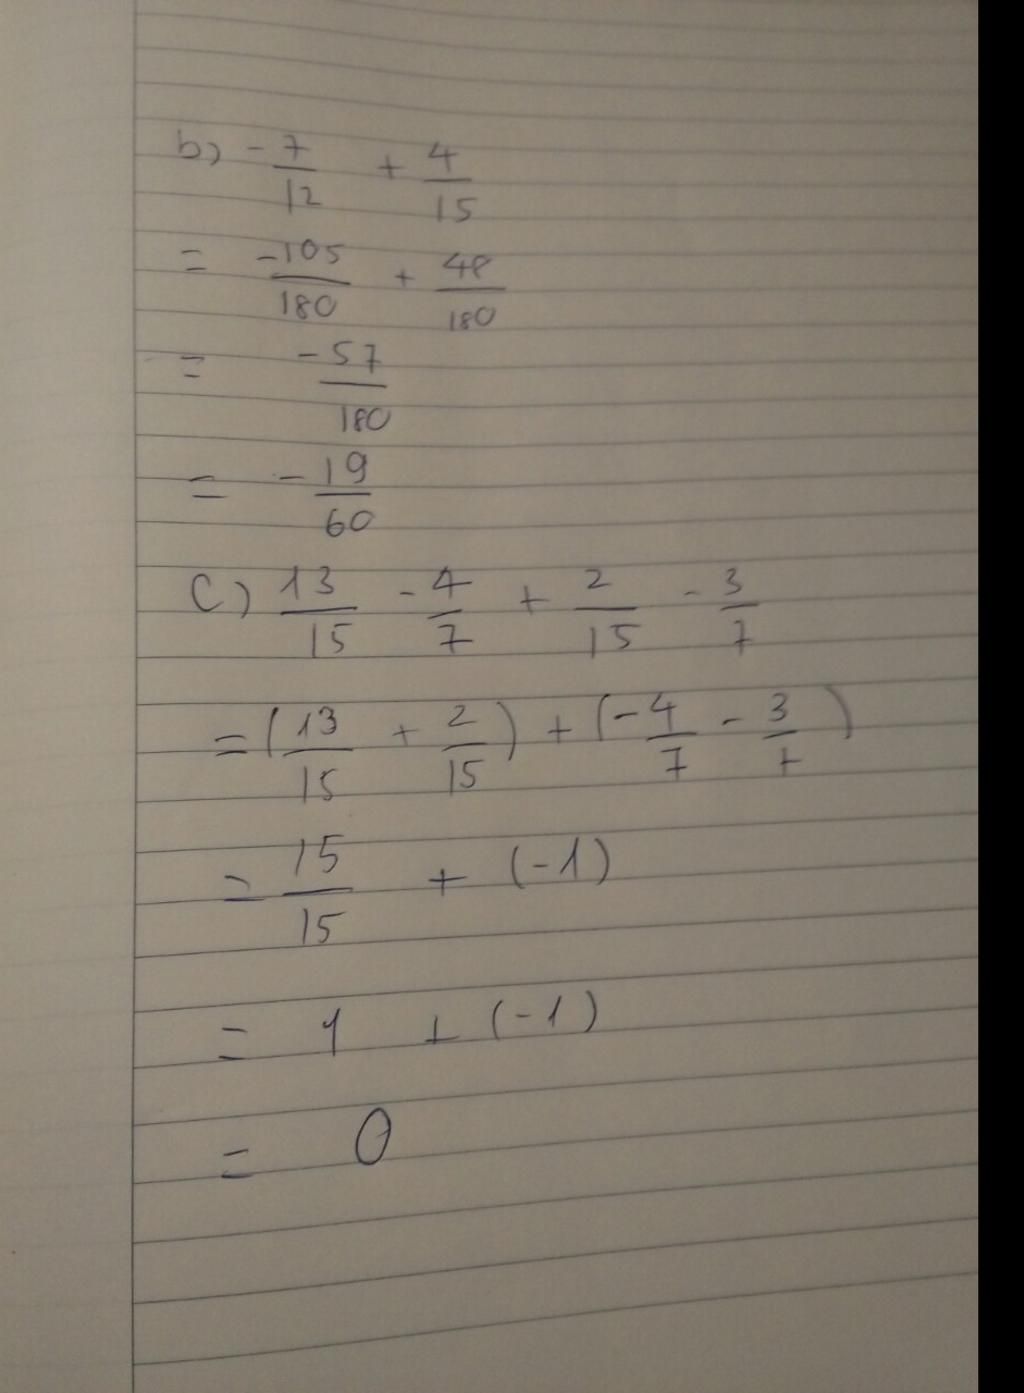 b) -7/12 + 4/15
= -105/180 + 48/180
= -57/180
= -19/60
c) 13/15 - 4/7 + 2/15 - 3/7
= (13/15 + 2/15) + (-4/7 - 3/7)
= 15/15 + (-1)
= 1 + (-1)
= 0